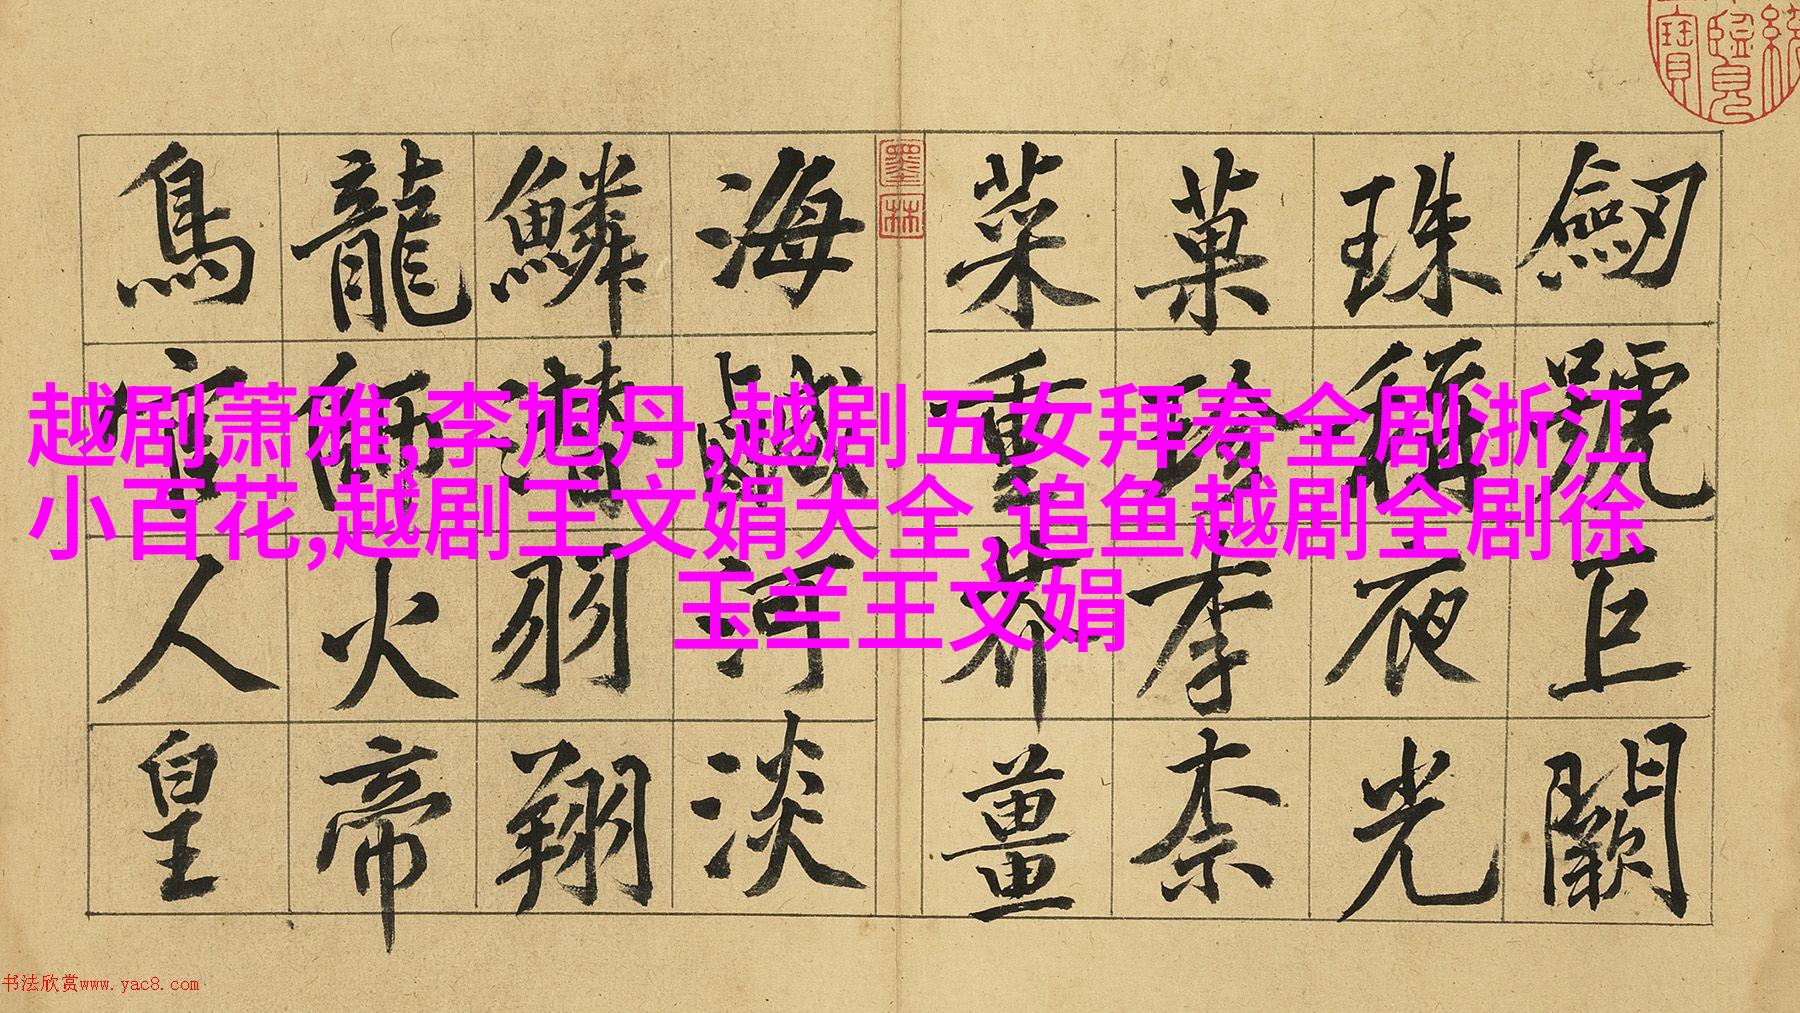 越剧萧雅,李旭丹,越剧五女拜寿全剧浙江
小百花,越剧王文娟大全,追鱼越剧全剧徐
玉兰王文娟
劒號巨闕
珠稱夜光
菓珍李柰
菜重芥薑
海鹹河淡
鱗潛羽翔
龍師火帝
鳥官人皇
墨林
书法欣赏www.yac8.com